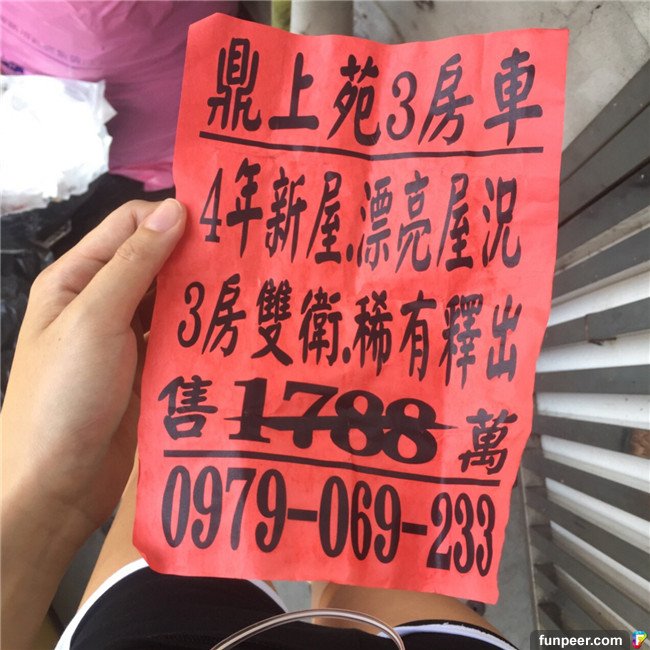 鼎上苑3房車
4年新屋.漂亮屋況
3房雙衛.稀有釋出
售1788萬
0979-069-233
funpeer.com